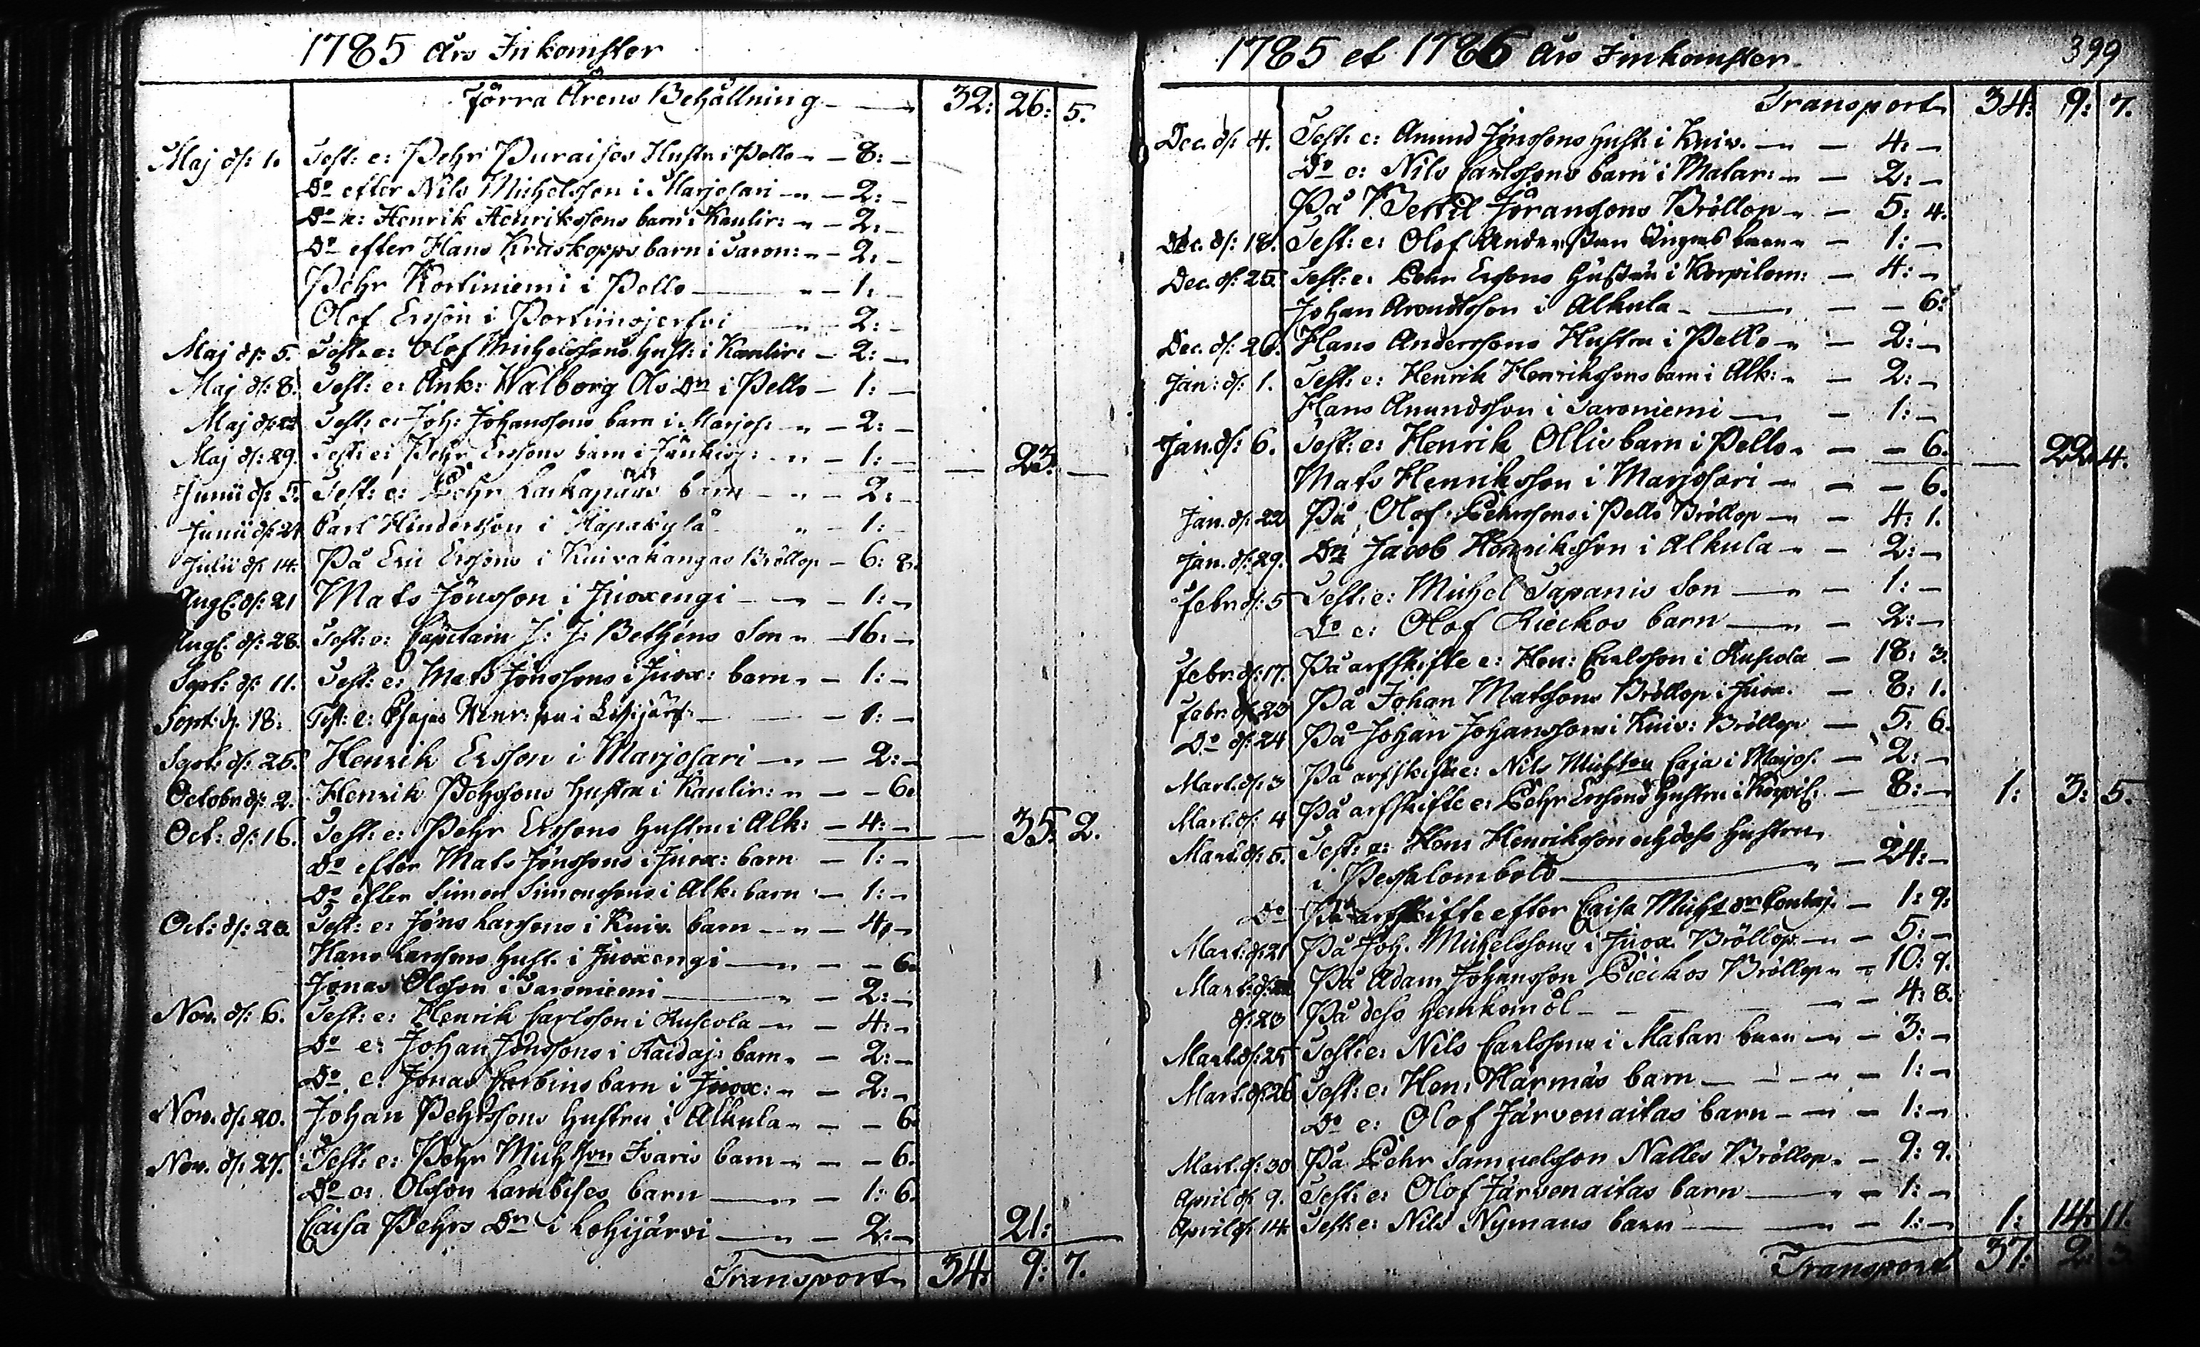 1785 års Inkomster
Förra Årens Behållning 32: 26: 5.
Maj d: 1. Test: e: Pehr Puraises Hustru i Pello 8: –
Do efter Nils Michelsson i Marjosari 2: –
Do e: Henrik Henrikssons barn i Kaulir: 2: –
Do efter Hans Kraskopps barn i Saron: 2: –
Pehr Kortiniemi i Pello 1: –
Olof Ersson i Portimojerfvi 2: –
Maj d: 5. Test: e: Olof Michelssons Hust: i Kaulir: 2: –
Maj d: 8. Test: e: Änk: Walborg Ols Dr i Pello 1: –
Maj d: 22 Test: e: Joh: Johanssons barn i Marjos: 2: –
Maj d: 29. Test: e: Pehr Erssons barn i Junkisj: 1: – — 23. —
Junii d: 5. Test: e: Pehr Laskapääs barn 2: –
Junii d: 24 Carl Hindersson i Haapakylä 1: –
Julii d: 14. På Eric Erssons i Kuivakangas Bröllop 6: 8.
Aug: d: 21 Mats Jönsson i Juoxengi 1: –
Aug: d: 28. Test: e: Capitain J: J: Bethéns Son 16: –
Sept: d: 11. Test: e: Mats Jönssons i Juox: barn 1: –
Sept: d. 18. Test: e: Henr: i 1: –
Sept: d: 25. Henrik Ersson i Marjosari 2: –
Octobr d: 2. Henrik Pehrssons Hustru i Kaulir: – 6.
Oct: d: 16. Test: e: Pehr Erssons Hustru i Alk: 4: – — 35: 2.
Do efter Mats Jönssons i Juox: barn 1: –
Do efter Simon Simonssons i Alk: barn 1: –
Oct: d: 23. Test: e: Jöns Larssons i Kuiv. barn 4: –
Hans Larssons Hust. i Juoxengi – 6.
Jonas Olsson i Saroniemi 2: –
Nov. d: 6. Test: e: Henrik Carlsson i Ruskola 4: –
Do e: Johan Jönssons i Haidaj: barn 2: –
Do e: Jonas Korbins barn i Juox: 2: –
Nov. d: 20. Johan Pehrssons Hustru i Alkula – 6
Nov. d: 27. Test: e: Pehr Michsson Isaris barn – 6.
Do e: Olsson Lambises barn 1: 6.
Caisa Pehrs Dr i Lohijärvi 2: – 21:
Transport 34: 9: 7.
1785 et 1786 års Inkomster 399
Transport 34: 9: 7.
Dec. d: 4. Test: e: Amund Jönssons Hust: i Kuiv. 4: –
Do e: Nils Carlssons barn i Matar: 2: –
På Bertil Jöranssons Bröllop 5: 4.
Dec. d: 18. Test: e: Olof Andersson barn 1: –
Dec. d: 25. Test: e: Pehr Erssons Hustru i Korpilom: 4: –
Johan Arendtsson i Alkula – 6:
Dec. d: 26. Hans Anderssons Hustru i Pello 2: –
Jan: d: 1. Test: e: Henrik Henrikssons barn i Alk: 2: –
Hans Amundsson i Saroniemi 1: –
Jan. d: 6. Test: e: Henrik Ollis barn i Pello – 6. — 22. 4.
Mats Henriksson i Marjosari – 6.
Jan. d: 22 På Olof Pehrssons i Pello Bröllop 4: 1.
Jan. d: 29. Do Jacob Henriksson i Alkula 2: –
Febr. d: 5 Test: e: Michel Tapanis Son 1: –
Do e: Olof Kieckos barn 2: –
Febr. d: 17. På arfskifte e: Hen: Carlsson i Ruskola 18: 3.
Febr. d: 23 På Johan Matssons Bröllop i Juox. 8: 1.
Do d: 24 På Johan Johanssons i Kuiv: Bröllop 5: 6.
Mart. d: 3 På arfskifte e: Nils Michsson Caja i Marjos. 2: –
Mart. d: 4 På arfskifte e: Pehr Erssons Hustru i Korpil. 8: – 1: 3: 5.
Mart. d: 5. Test: e: Hans Henriksson och dess Hustru
i Pessalombolo 24: –
Do På arfskifte efter Caisa Michs dr 1: 9:
Mart. d: 21 På Joh. Michelssons i Juox. Bröllop 5: –
Mart. d: På Adam Johansson Kieckos Bröllop 10: 9.
d: 23 På dess Hemkomöl 4: 8.
Mart. d: 25 Test: e: Nils Carlssons i Matar: barn 3: –
Mart. d: 26 Test: e: Hen: Harmas barn 1: –
Do e: Olof Järvenaitas barn 1: –
Mart. d: 30 På Pehr Samuelsson Nalles Bröllop 9: 9.
April d: 9. Test: e: Olof Järvenaitas barn 1: –
April d: 14. Test: e: Nils Nymans barn 1: – 1: 14: 11.
Transport 37: 2: 3